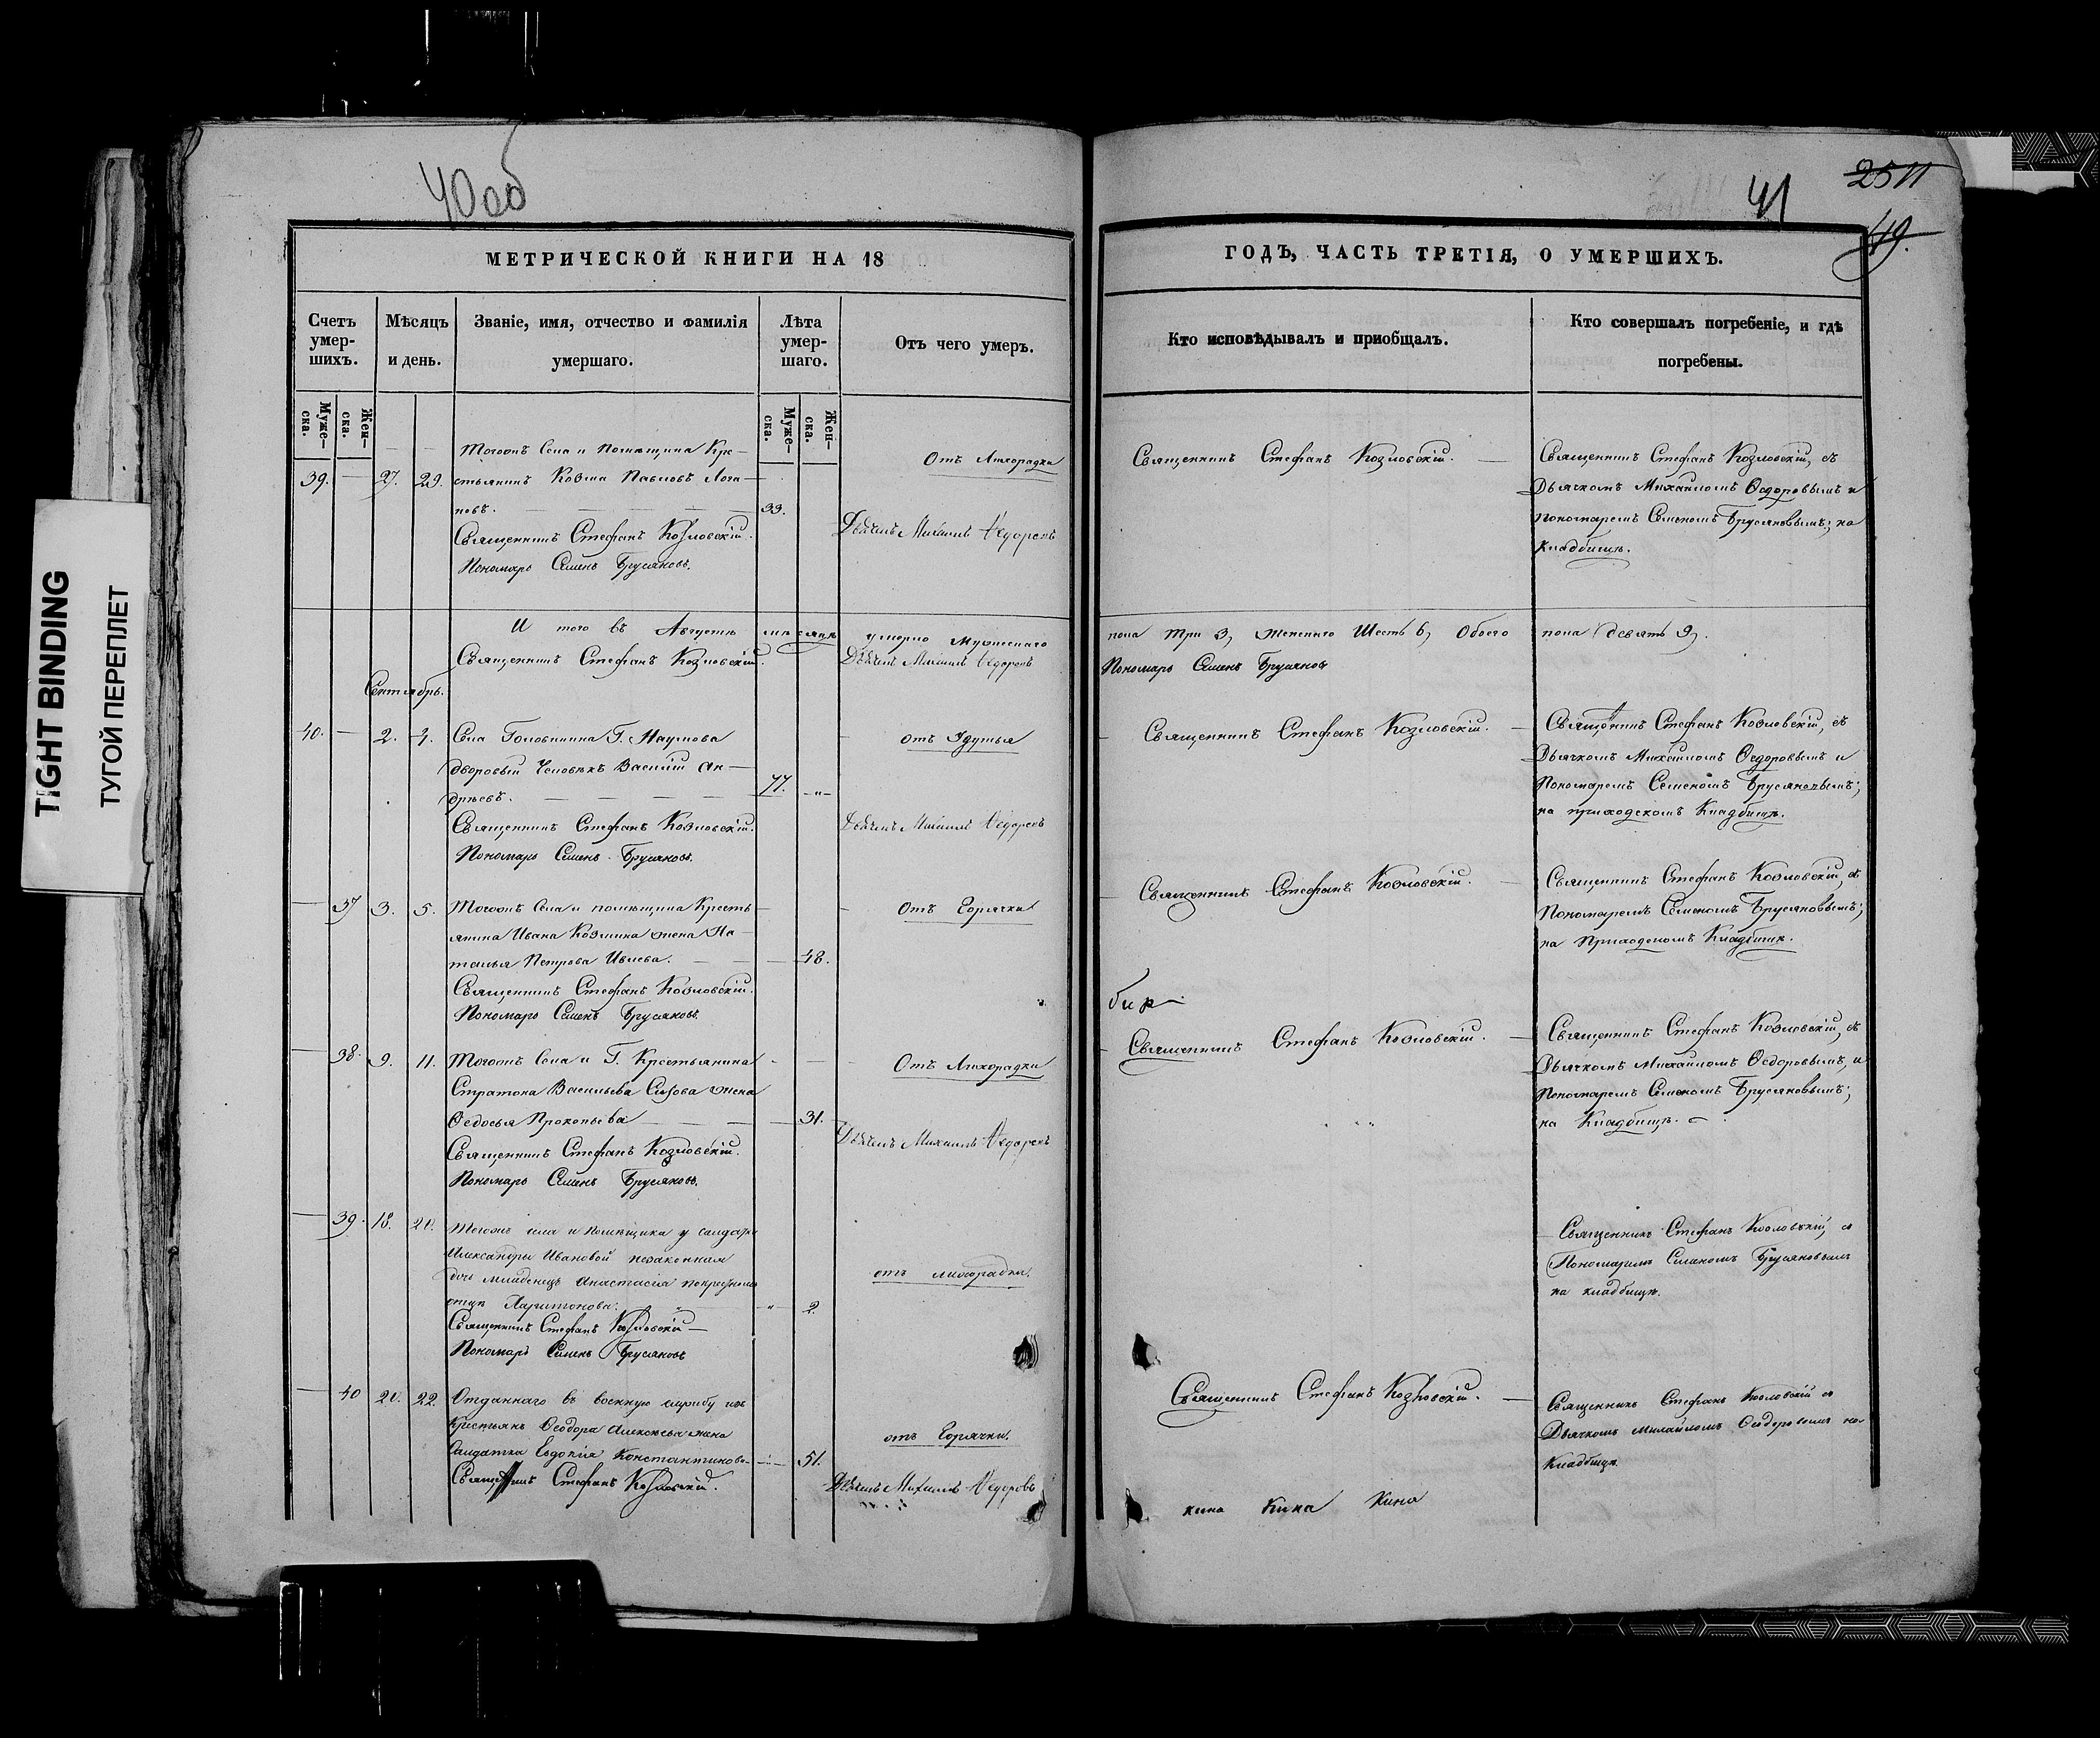 40об
41
2511
49.
TIGHT BINDING
ТУГОЙ ПЕРЕПЛЕТ
МЕТРИЧЕСКОЙ КНИГИ НА 18
ГОДЪ, ЧАСТЬ ТРЕТІЯ, О УМЕРШИХЪ.
Счетъ умер-шихъ.
Мѣсяцъ и день.
Званіе, имя, отчество и фамилія умершаго.
Лѣта умер-шаго.
Отъ чего умеръ.
Кто исповѣдывалъ и приобщалъ.
Кто совершалъ погребеніе, и гдѣ погребены.
Муже-ска.
Жен-ска.
Муже-ска.
Жен-ска.
39. — 27. 29.
Тогожъ Села и Помѣщика Кре-
стьянинъ Козма Павловъ Лога-
новъ. 33.
Священникъ Стефанъ Козловскій.
Пономарь Семенъ Брусяновъ.
Отъ Лихорадки
Дьячекъ Михаилъ Ѳедоровъ
Священникъ Стефанъ Козловскій.
Священникъ Стефанъ Козловскій, съ
Дьячкомъ Михаиломъ Ѳедоровымъ и
Пономаремъ Семеномъ Брусяновымъ; на
Кладбищѣ.
И того въ Августѣ мѣсяцѣ умерло мужескаго пола три 3, женскаго Шесть 6, Обоего пола девять 9.
Священникъ Стефанъ Козловскій.
Дьячекъ Михаилъ Ѳедоровъ
Пономарь Семенъ Брусяновъ
Сентябрь.
40. — 2. 4.
Села Головкина Г. Наумова
дворовый Человѣкъ Василій Ан-
дрѣевъ. 77.
Священникъ Стефанъ Козловскій.
Пономарь Семенъ Брусяновъ.
отъ Удушья
Дьячекъ Михаилъ Ѳедоровъ
Священникъ Стефанъ Козловскій.
Священникъ Стефанъ Козловскій, съ
Дьячкомъ Михаиломъ Ѳедоровымъ и
Пономаремъ Семеномъ Брусяновымъ;
на приходскомъ Кладбищѣ.
— 37 3. 5.
Тогожъ Села и помѣщика Кресть
янина Ивана Козмина жена На-
талья Петрова 48.
Священникъ Стефанъ Козловскій.
Пономарь Семенъ Брусяновъ.
Отъ Горячки
Священникъ Стефанъ Козловскій.
Священникъ Стефанъ Козловскій, съ
Пономаремъ Семеномъ Брусяновымъ;
на Приходскомъ Кладбищѣ.
— 38. 9. 11.
Тогожъ Села и Г. Крестьянина
Стратона Васильева Сизова жена
Ѳедосья Прокопьева 31.
Священникъ Стефанъ Козловскій.
Пономарь Семенъ Брусяновъ.
Отъ Лихорадки
Дьячекъ Михаилъ Ѳедоровъ
Священникъ Стефанъ Козловскій.
Священникъ Стефанъ Козловскій, съ
Дьячкомъ Михаиломъ Ѳедоровымъ, и
Пономаремъ Семеномъ Брусяновымъ;
на Кладбищѣ.
— 39. 18. 20.
Тогожъ села и помѣщика у солдатки
Александры Ивановой незаконная
дочь младенецъ Анастасія
Харитонова. 2.
Священникъ Стефанъ Козловскій
Пономарь Семенъ Брусяновъ
отъ лихорадки.
Священникъ Стефанъ Козловскій, съ
Пономаремъ Семеномъ Брусяновымъ
на кладбищѣ.
— 40 20. 22.
Отданнаго въ военную службу изъ
Крестьянъ Ѳеодора Алексѣева жена
Солдатка Евдокія Константинова 51.
Священникъ Стефанъ Козловскій.
отъ Горячки.
Дьячекъ Михаилъ Ѳедоровъ
Священникъ Стефанъ Козловскій.
Священникъ Стефанъ Козловскій съ
Дьячкомъ Михаиломъ Ѳедоровымъ на
Кладбищѣ.